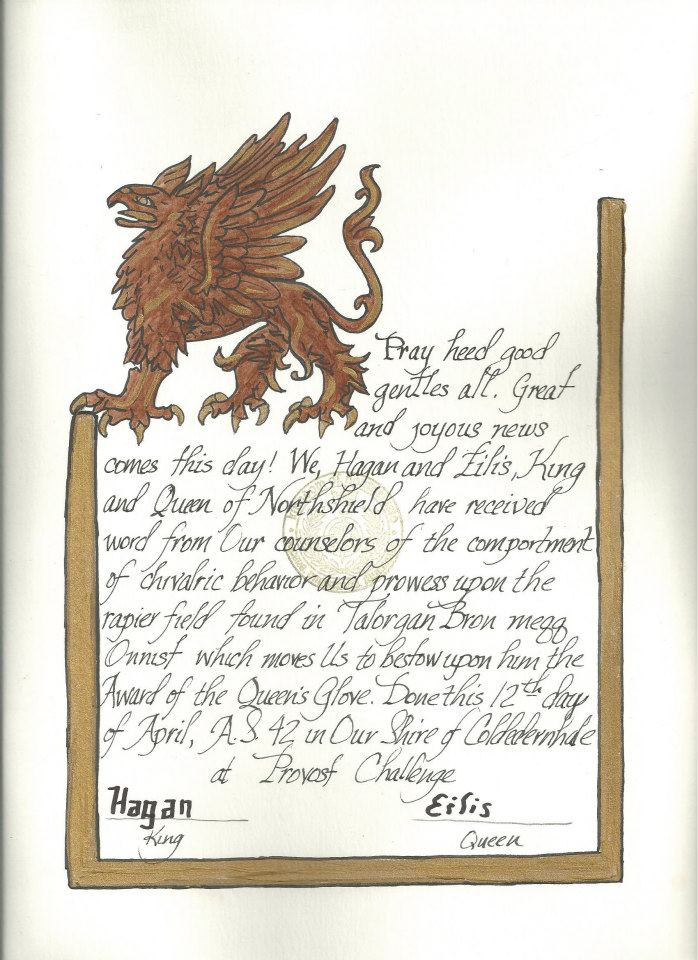 Pray heed good
gentles all. Great
and joyous news
comes this day! We, Hagan and Eilis, King
and Queen of Northshield have received
word from Our counselors of the comportment
of chivalric behavior and prowess upon the
rapier field found in Talorgan Bron megq
Onnist which moves Us to bestow upon him the
Award of the Queen's Glove. Done this 12th day
of April, A.S. 42 in Our Shire of
at Provost Challenge
Hagan Eilis
King Queen